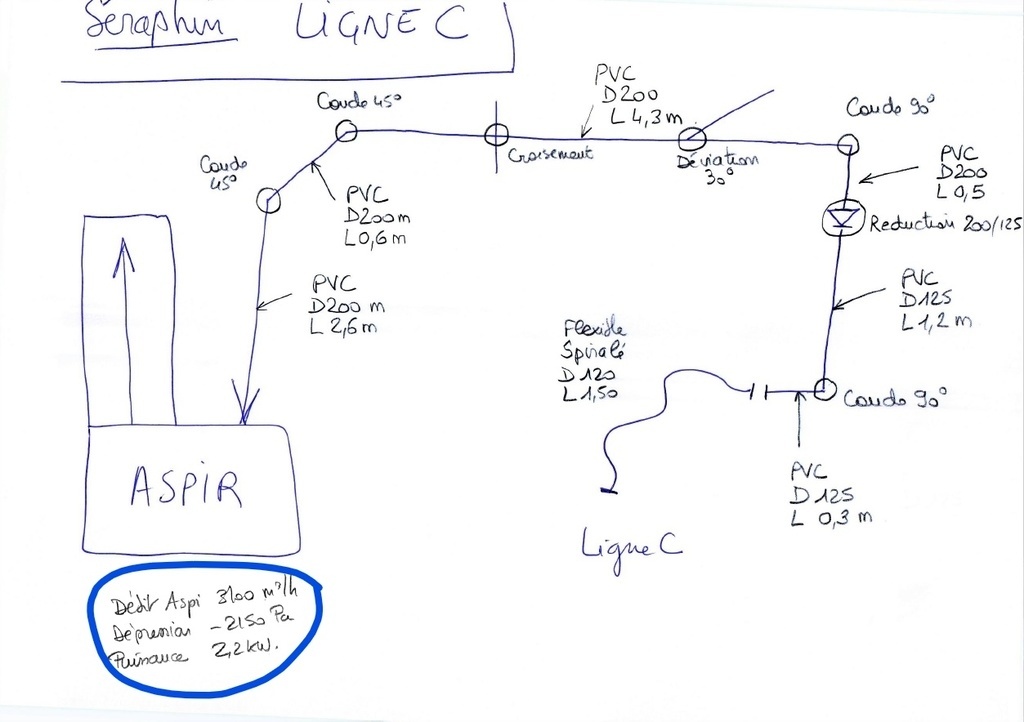 Séraphin LIGNE C
Coude 45°
PVC
D200
L 4,3 m
Coude 90°
Croisement
Déviation
30°
Coude
45°
PVC
D200
L 0,5
PVC
D200 m
L 0,6 m
Reduction 200/125
PVC
D200 m
L 2,6 m
PVC
D125
L 1,2 m
Flexible
Spiralé
D 120
L 1,50
Coude 90°
ASPIR
PVC
D 125
L 0,3 m
Ligne C
Débit Aspi 3100 m³/h
Dépression -2150 Pa
Puissance 2,2 kW.